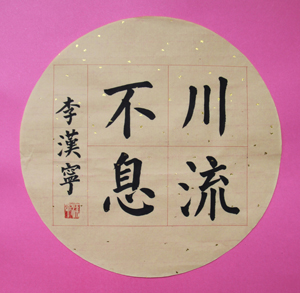 川流
不息
李漢寧